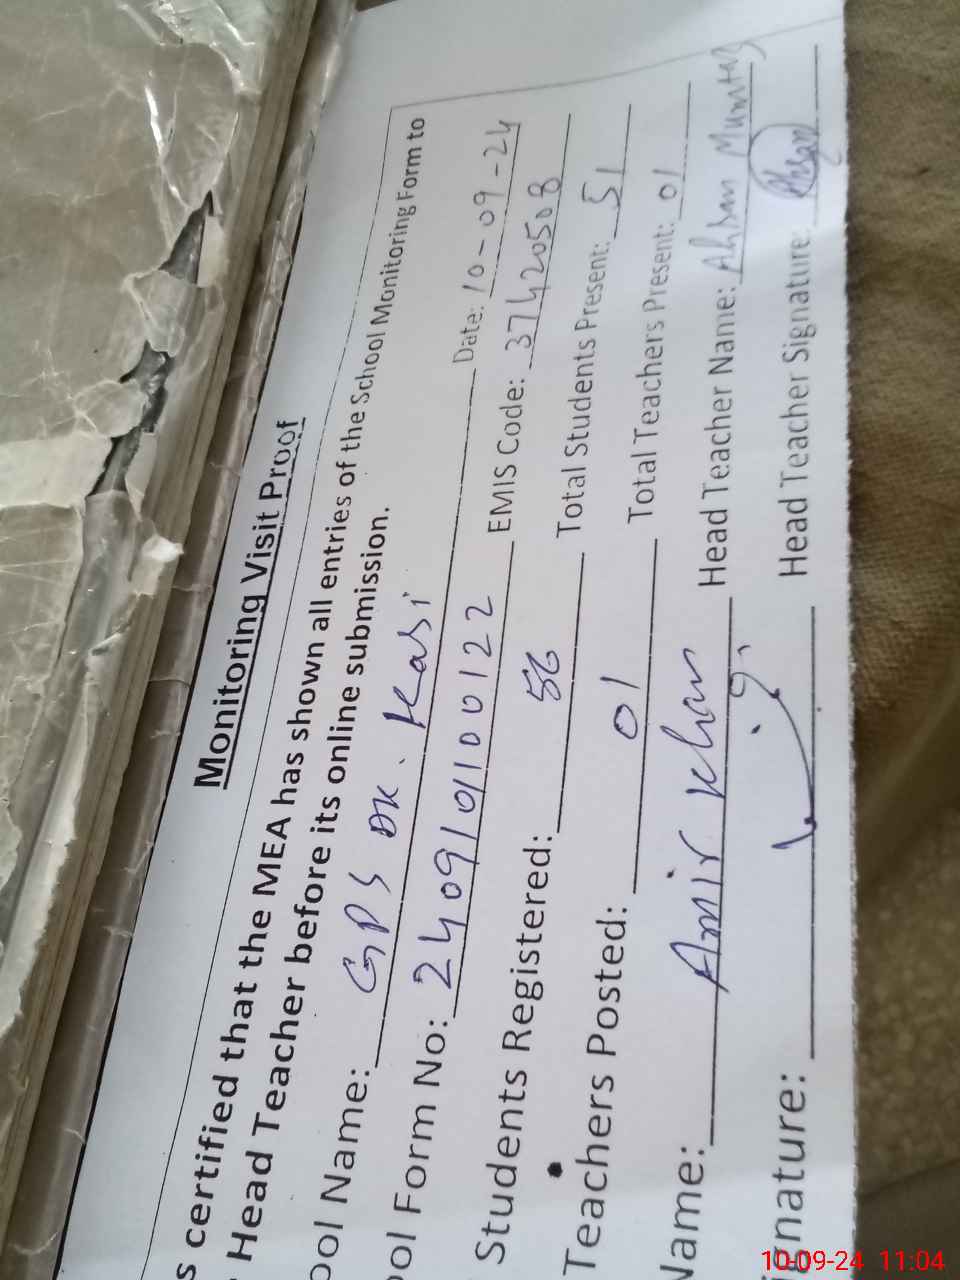 Monitoring Visit Proof
s certified that the MEA has shown all entries of the School Monitoring Form to
Head Teacher before its online submission.
ool Name: GPS DK. Kassi Date: 10-09-24
ool Form No: 24091010100122 EMIS Code: 37420508
Students Registered: 56 Total Students Present: 51
Teachers Posted: 01 Total Teachers Present: 01
Name: Amir Khan Head Teacher Name: Ahsan Mumtaz
ignature: Head Teacher Signature: Ahsan
10-09-24 11:04